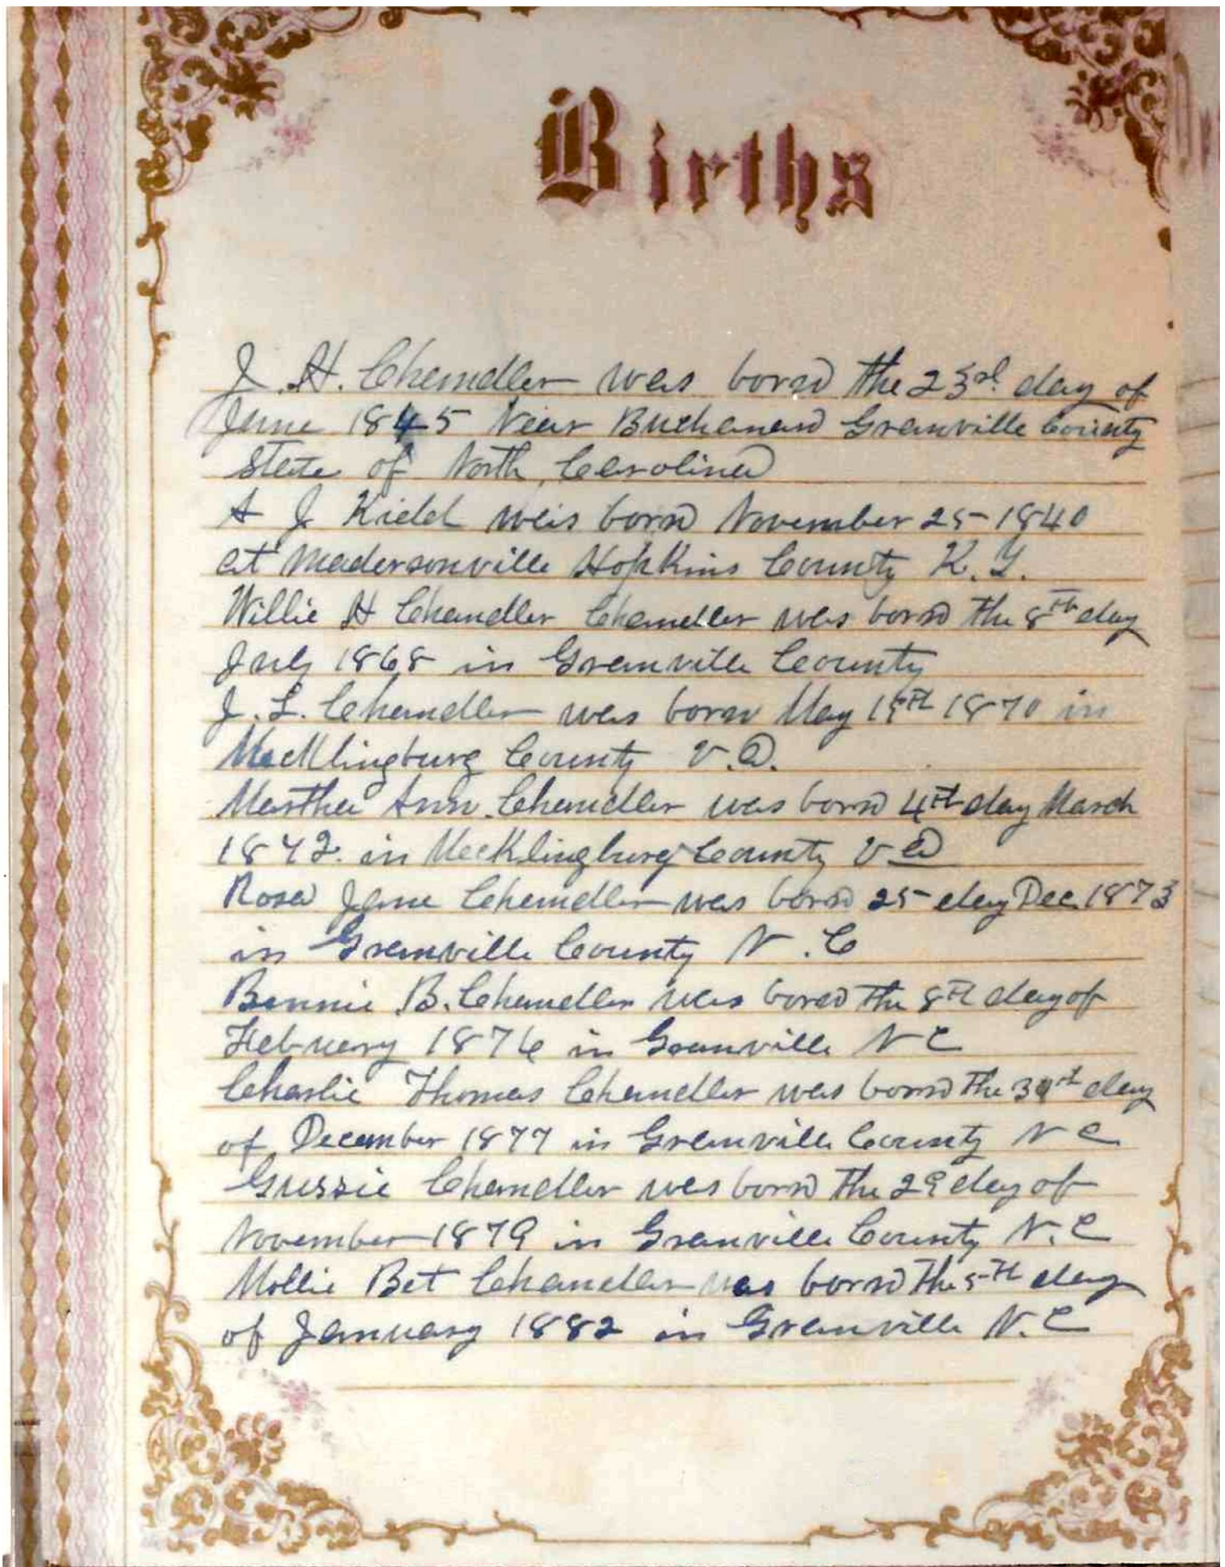 Births
J. H. Chandler was born the 23rd day of
June 1845 Near Buchanan Granville County
State of North Carolina
A J Kidd was born November 25 1840
at Madersonville Hopkins County K.Y.
Willie H Chandler Chandler was born the 8th day
July 1868 in Granville County
J. L. Chandler was born May 1870 in
Mecklingburg County V.A.
Martha Ann Chandler was born 4th day March
1872 in Mecklingburg County VA
Rosa Jane Chandler was born 25 day Dec 1873
in Granville County N.C
Bennie B. Chandler was born the 8th day of
February 1876 in Granville NC
Charlie Thomas Chandler was born the day
of December 1877 in Granville County NC
Gussie Chandler was born the 29 day of
November 1879 in Granville County N.C
Mollie Bet Chandler was born the 5th day
of January 1882 in Granville N.C